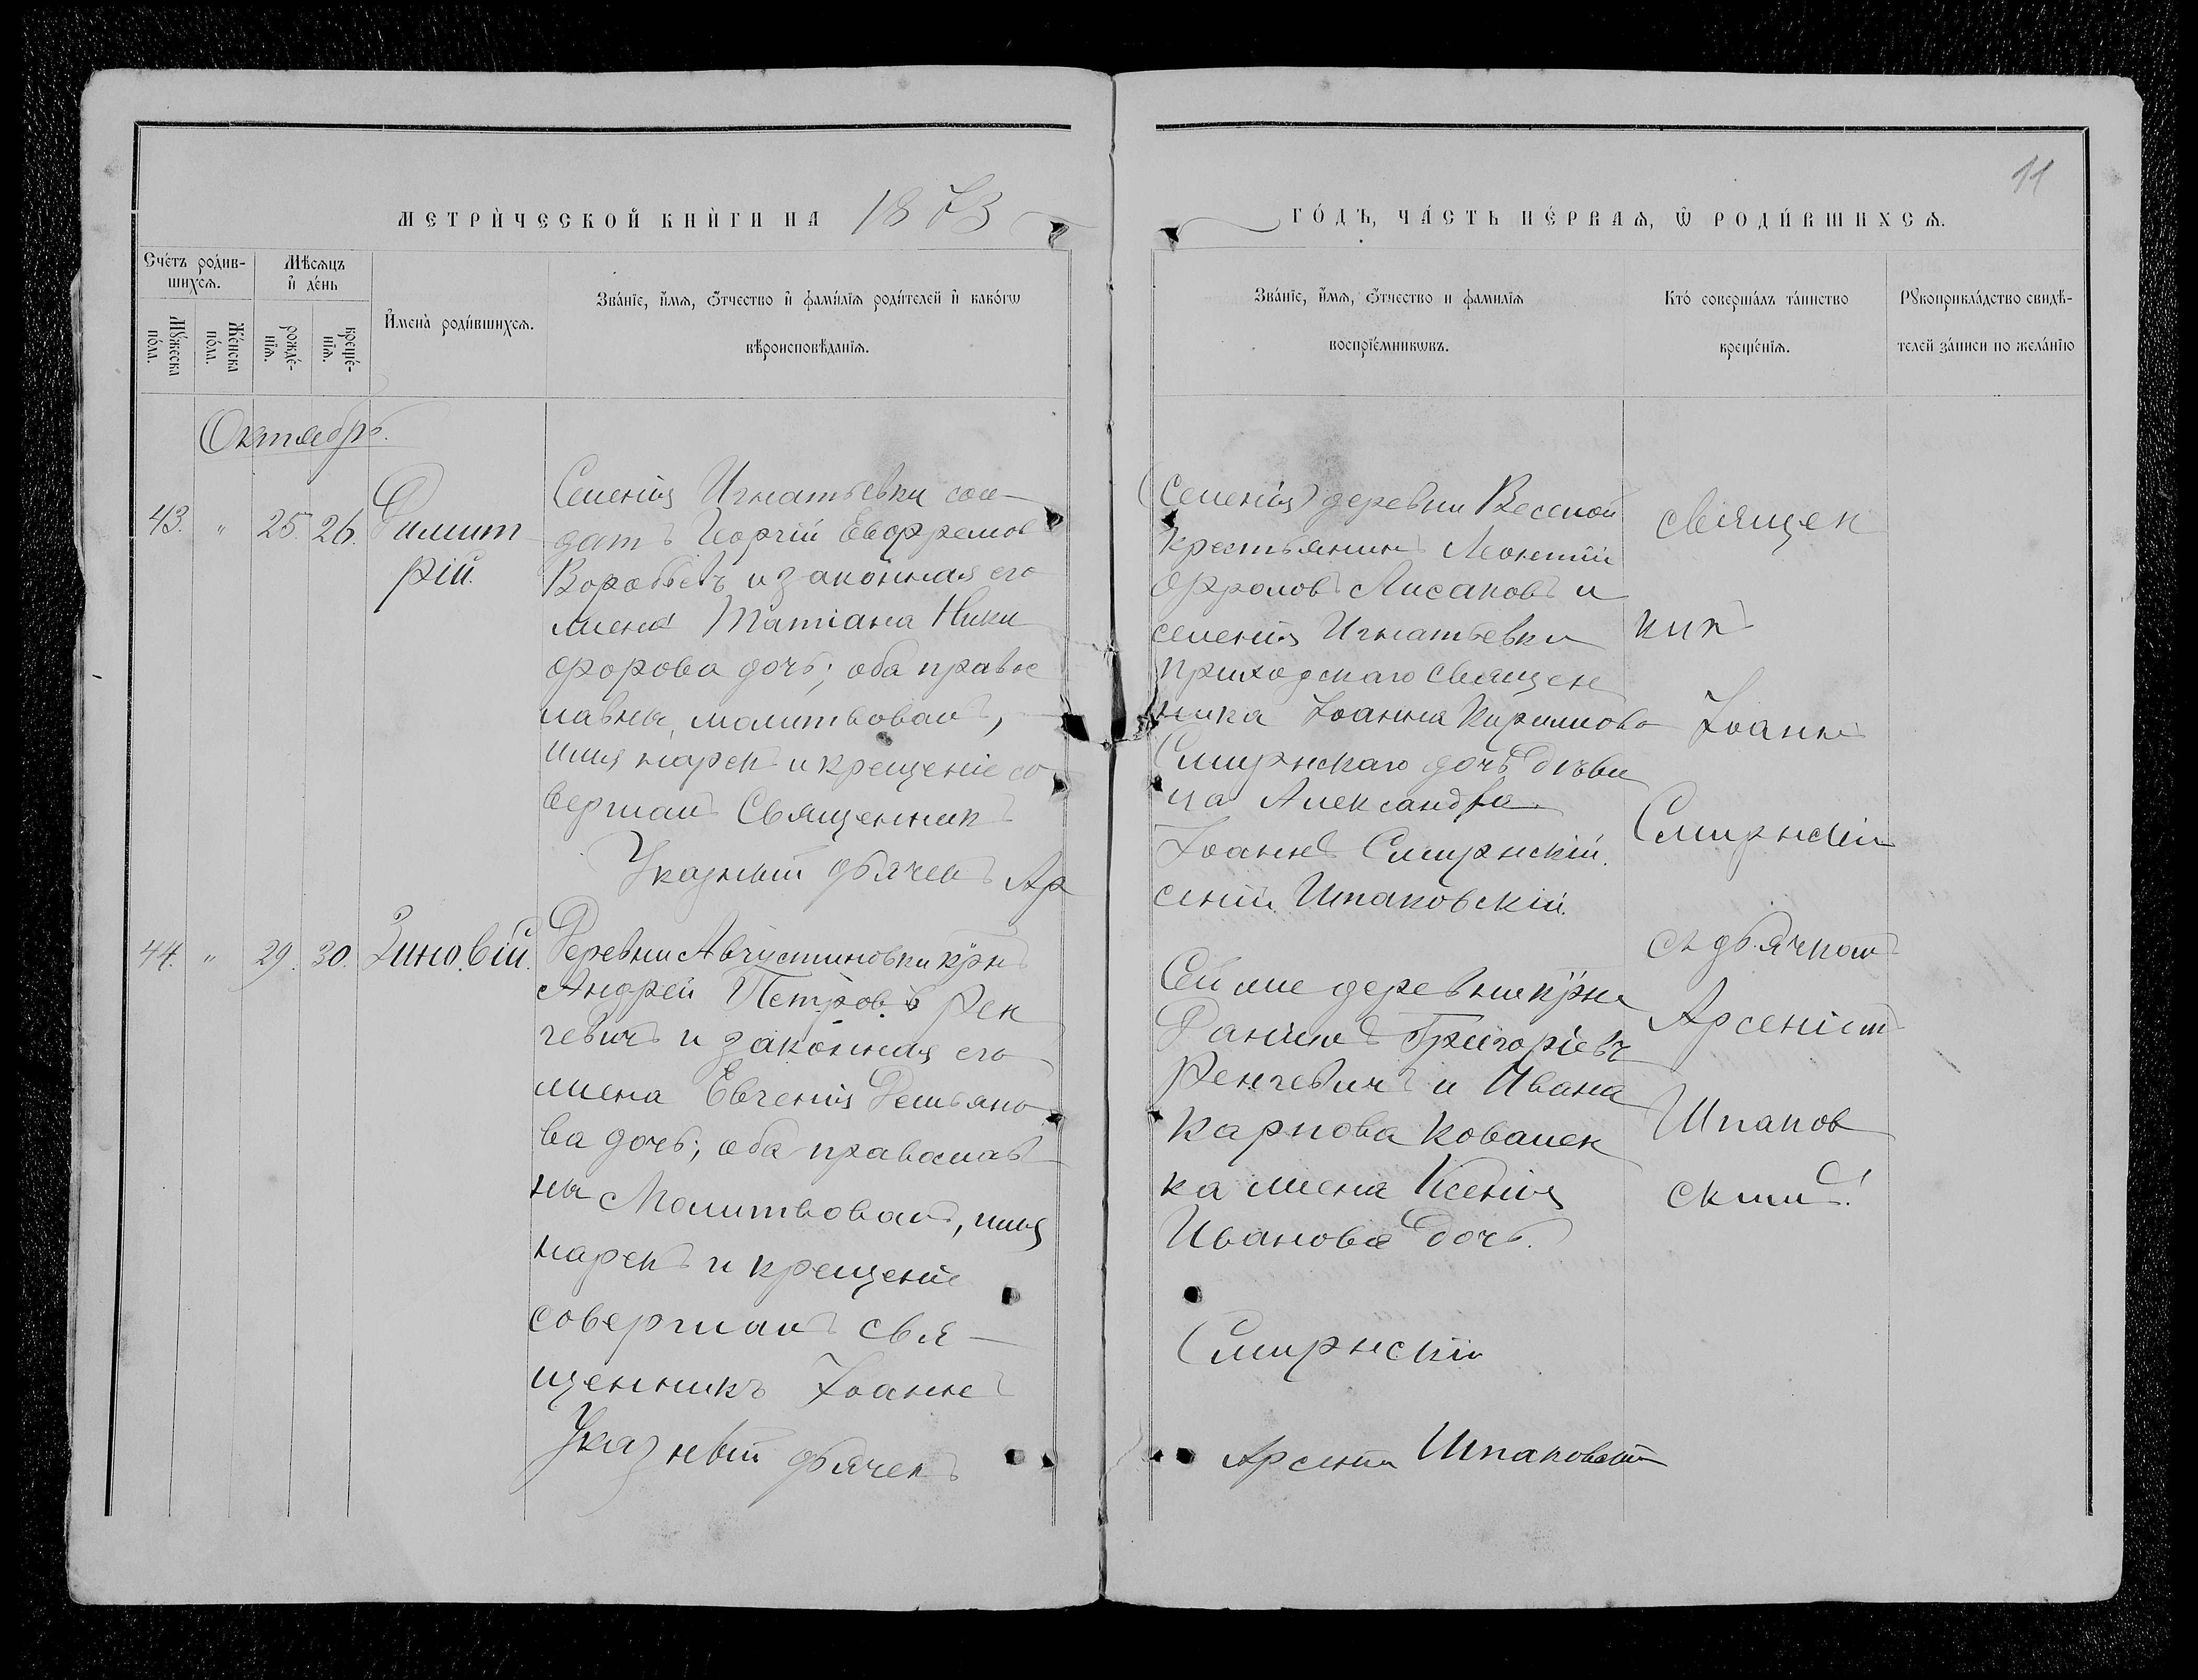 11
МЕТРИ́ЧЕСКОЙ КНИ́ГИ НА 1873
ГО́ДЪ, ЧА́СТЬ ПЕ́РВАѦ, Ѽ РОДИ́ВШИХСѦ.
Сче́тъ роди́в-
шихсѧ.
Мꙋ́жеска
по́ла.
Же́нска
по́ла.
Мѣ́сѧцъ
и҆ де́нь
рожде́-
нїѧ.
креще́-
нїѧ.
И҆мена̀ роди́вшихсѧ.
Зва́нїе, и҆́мѧ, ѻ҆́тчество и҆ фами́лїѧ роди́телей и҆ како́гѡ
вѣроисповѣ́данїѧ.
Зва́нїе, и҆́мѧ, ѻ҆́тчество и фамилїѧ
воспрїе́мникѡвъ.
Кто́ соверша́лъ та́инство
креще́нїѧ.
Рꙋкоприкла́дство свидѣ́-
телей за́писи по жела́нїю
Октябрь.
43. " 25. 26. Димит
рій.
Селенія Игнатьевки сол-
датъ Георгій Евфремов
Воробьевъ и законная его
жена Татіана Ники
форова дочь; оба правос
лавны, молитвовалъ,
имя нарекъ и крещеніе со
вершалъ Священникъ
Указный дьячекъ Ар
(Селенія) деревни Веселой
крестьянинъ Леонтій
Фроловъ Лисаковъ и
селенія Игнатьевки
приходскаго священ
ника Іоанна Кирилова
Смирнскаго дочь Дѣви
ца Александра.
Іоаннъ Смирнскій.
сеній Шпаковскій.
священ
никъ
Іоаннъ
Смирнскій
съ дьячкомъ
Арсеніемъ
Шпаков
скимъ.
44. " 29. 30. Зиновій.
Деревни Августиновки крн
Андрей Петровъ Рен
гевичъ и законная его
жена Евгенія Демьяно
ва дочь; оба православ
ны Молитвовалъ, имя
нарекъ и крещеніе
совершалъ свя-
щенникъ Іоаннъ
Указный дьячекъ
Сей же деревни крн
Даніилъ Григоріевъ
Ренгевичъ и Ивана
Карпова Ковален
ка жена Ксенія
Иванова дочь.
Смирнскій
Арсеній Шпаковскій